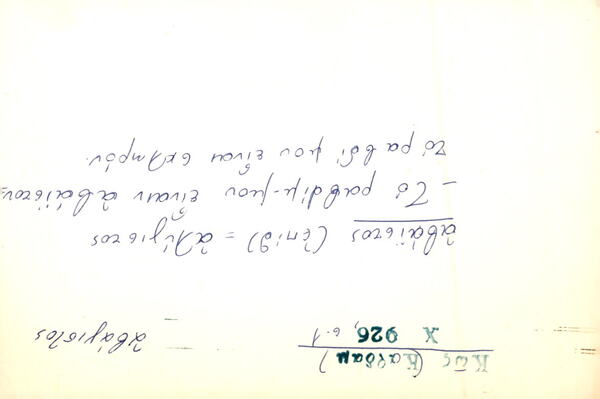 Κῶς (Καρδαμ)
Χ 926, σ. 1
ἀβάγιστος
ἀβάϊστος (ἐπίθ) = ἀλύγιστος
— Τὸ ραβδίμ-μου εἶναι ἀβάϊστον =
τὸ ραβδί μου εἶναι σκληρόν.